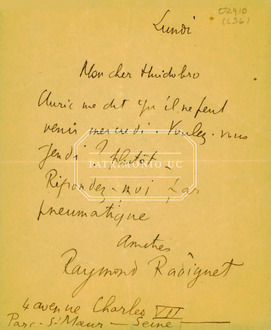 02410
Lundi
Mon cher Huidobro
Auric me dit qu'il ne peut
venir mercredi. Voulez-vous
jeudi ? plutôt_
Répondez-moi par
pneumatique
Amitiés
Raymond Radiguet
4 avenue Charles VII
Parc-St Maur_ Seine_
PATRIMONIO UC